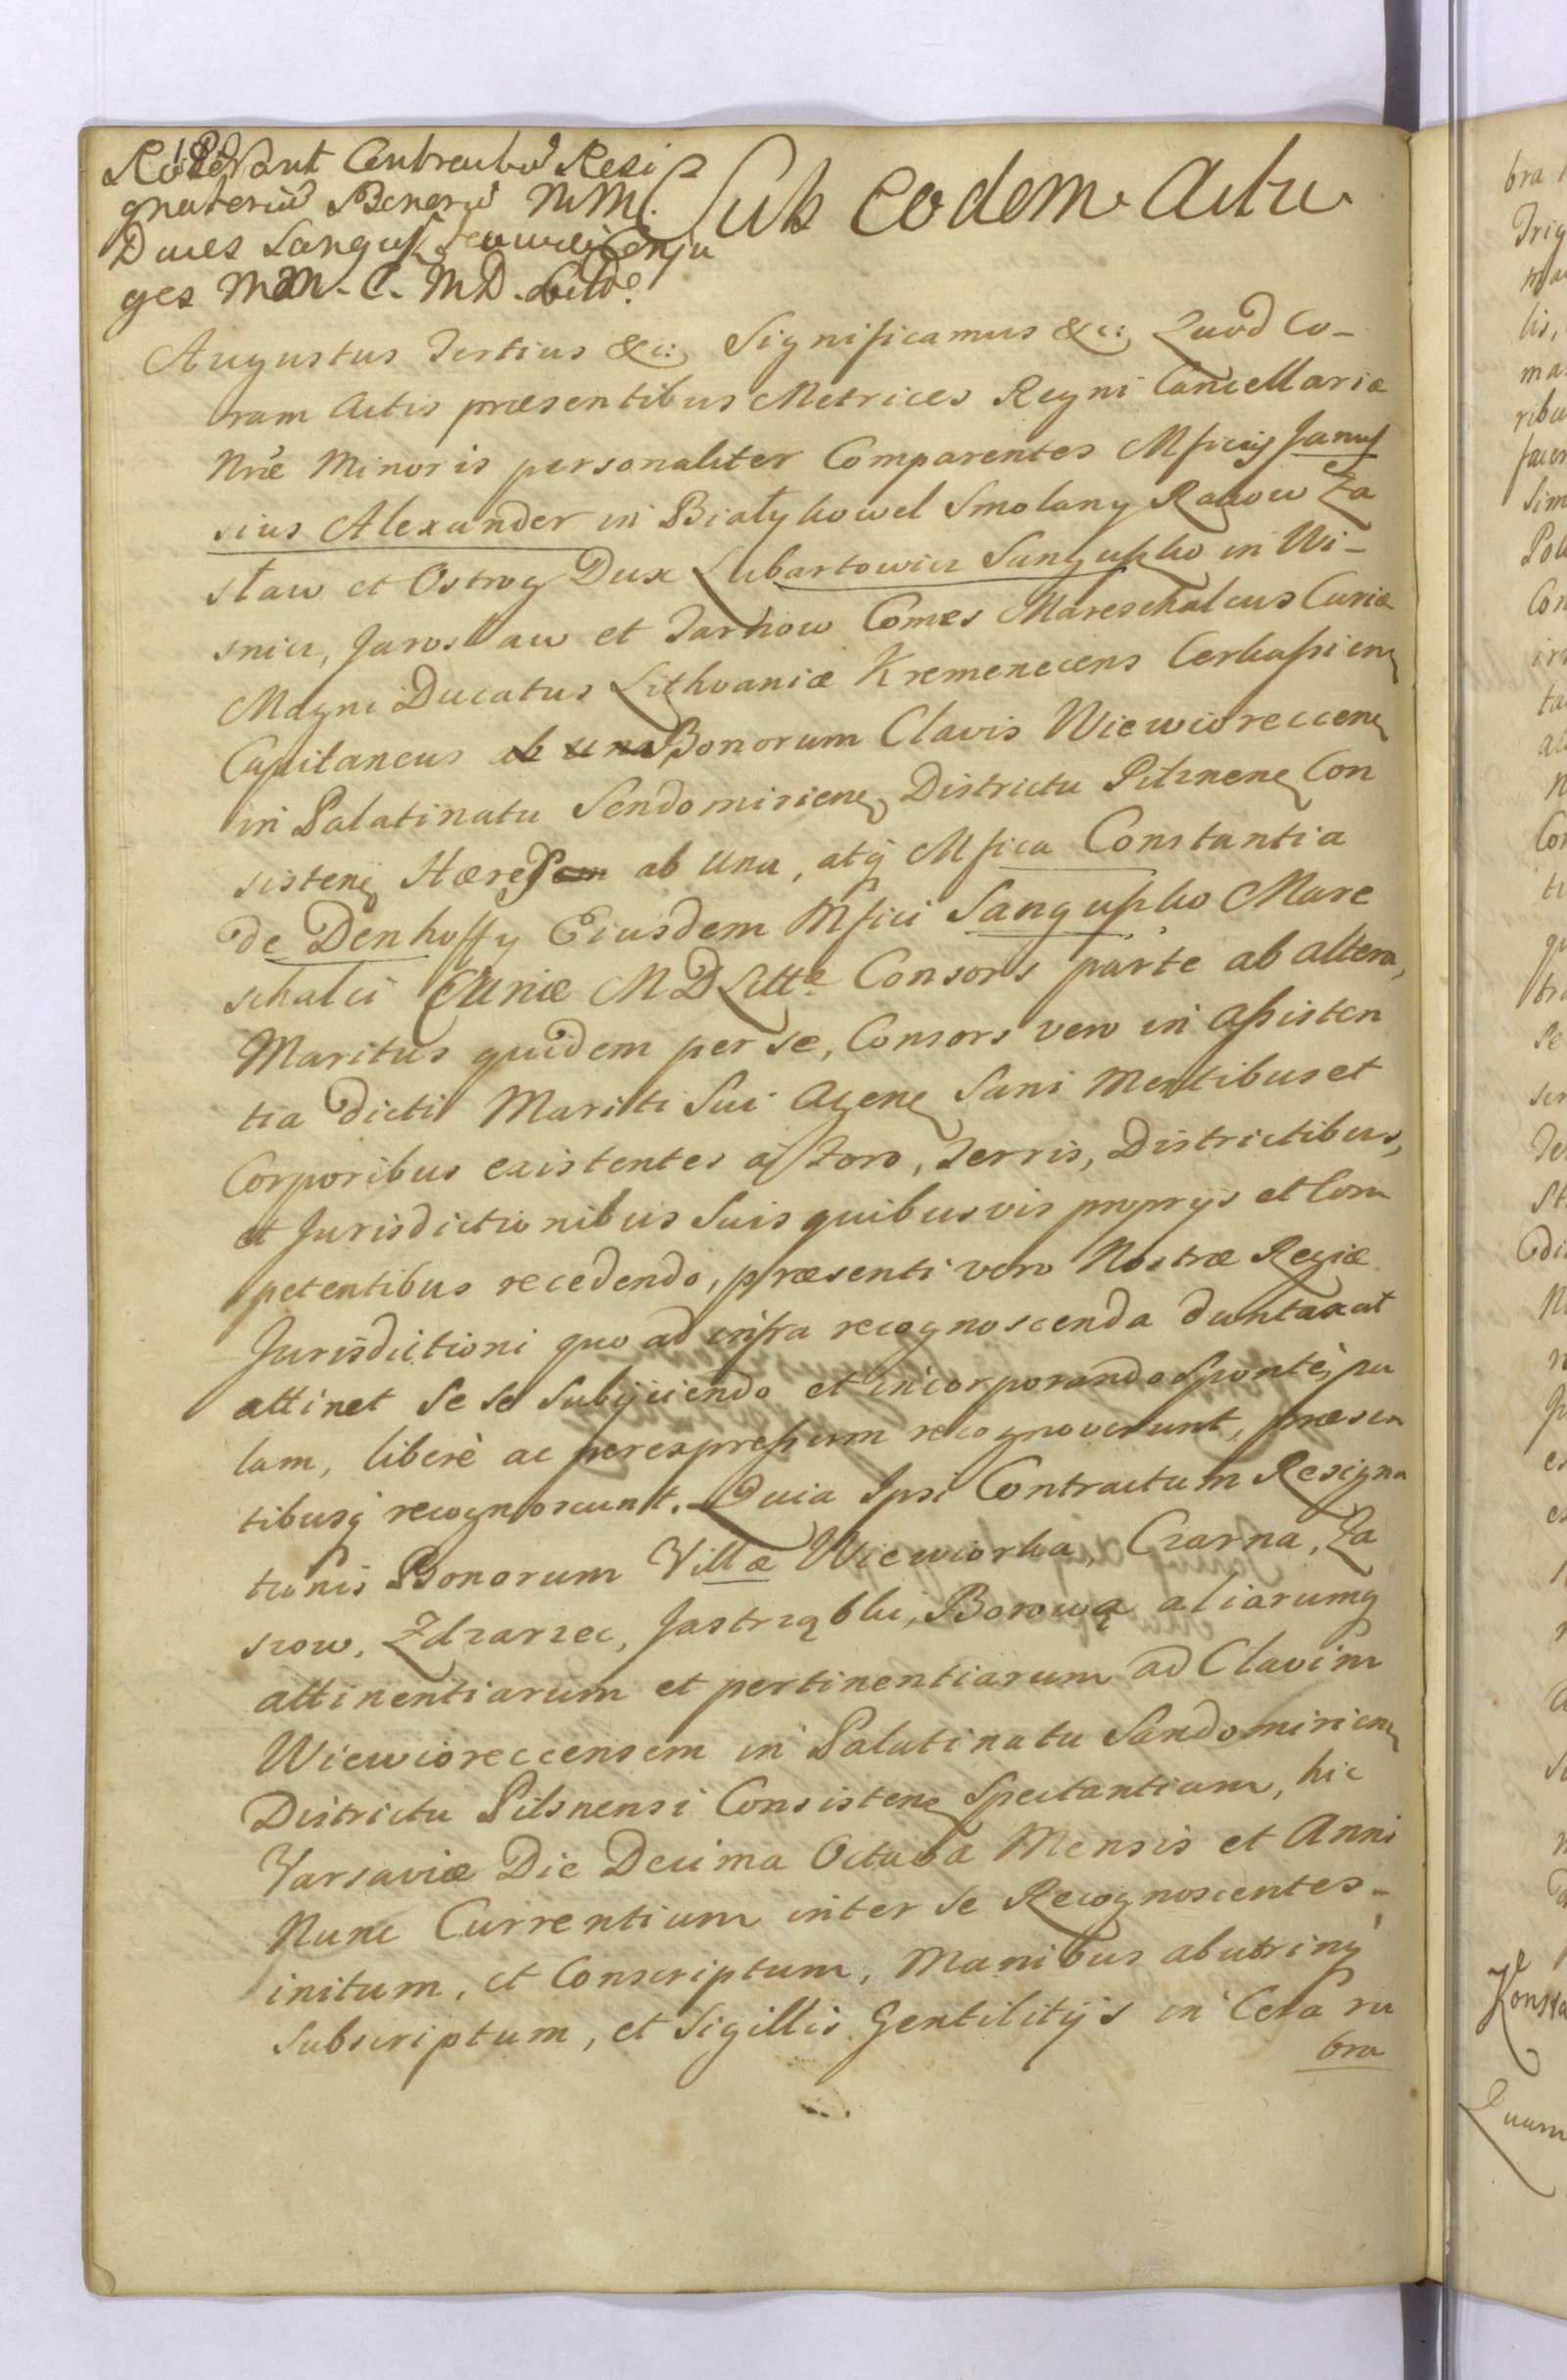 188
Roborant Contractus Resi
gnatorius Bonorū MM.
Duces Sangusz Conju
ges MM. C. M D. Litt.
Sub eodem Actu
Augustus Tertius &c: Significamus &c: Quod Co-
ram Actis præsentibus Metrices Regni Cancellariæ
Nræ Minoris personaliter Comparentes Mficus Janus
sius Alexander in Białykowel Smolany Rakow Za
sław et Ostrog Dux Lubartowicz Sanguszko in Wi-
snicz, Jarosław et Tarnow Comes Mareschalcus Curiæ
Magni Ducatus Lithvaniæ Kremenecens Cerkassien
Capitaneus ab una Bonorum Clavis Wiewioreccen
in Palatinatu Sendomirien Districtu Pilznen Con
sisten Hæres ab Una, atq Mfica Constantia
de Denhoffy Eiusdem Mfici Sanguszko Mare
schalci Curiæ M D Litte Consors parte ab altera,
Maritus quidem per se, Consors vero in assisten
tia dicti Mariti Sui Agen Sani Mentibus et
Corporibus existentes a foro, Terris, Districtibus,
et Jurisdictionibus Suis quibusvis proprijs et Com
petentibus recedendo, præsenti vero Nostræ Regiæ
Jurisdictioni quo ad infra recognoscenda duntaxat
attinet Se se Subijciendo et incorporando Sponte, pa
lam, liberè ac per expressum recognoverunt, præsen
tibusq recognoscunt. Quia Ipsi Contractum Resigna
tionis Bonorum Villæ Wiewiorka, Czarna, Za
szow, Zdzarzec, Jastrząbki, Borowa aliarumq
attinentiarum et pertinentiarum ad Clavim
Wiewioreccensem in Palatinatu Sandomirien
Districtu Pilsnensi Consisten Spectantium, hic
Varsaviæ Die Decima Octava Mensis et Anni
Nunc Currentium inter Se Recognoscentes-
initum, et Conscriptum, Manibus ab utrinq
Subscriptum, et Sigillis Gentilitijs in Cera ru
bra